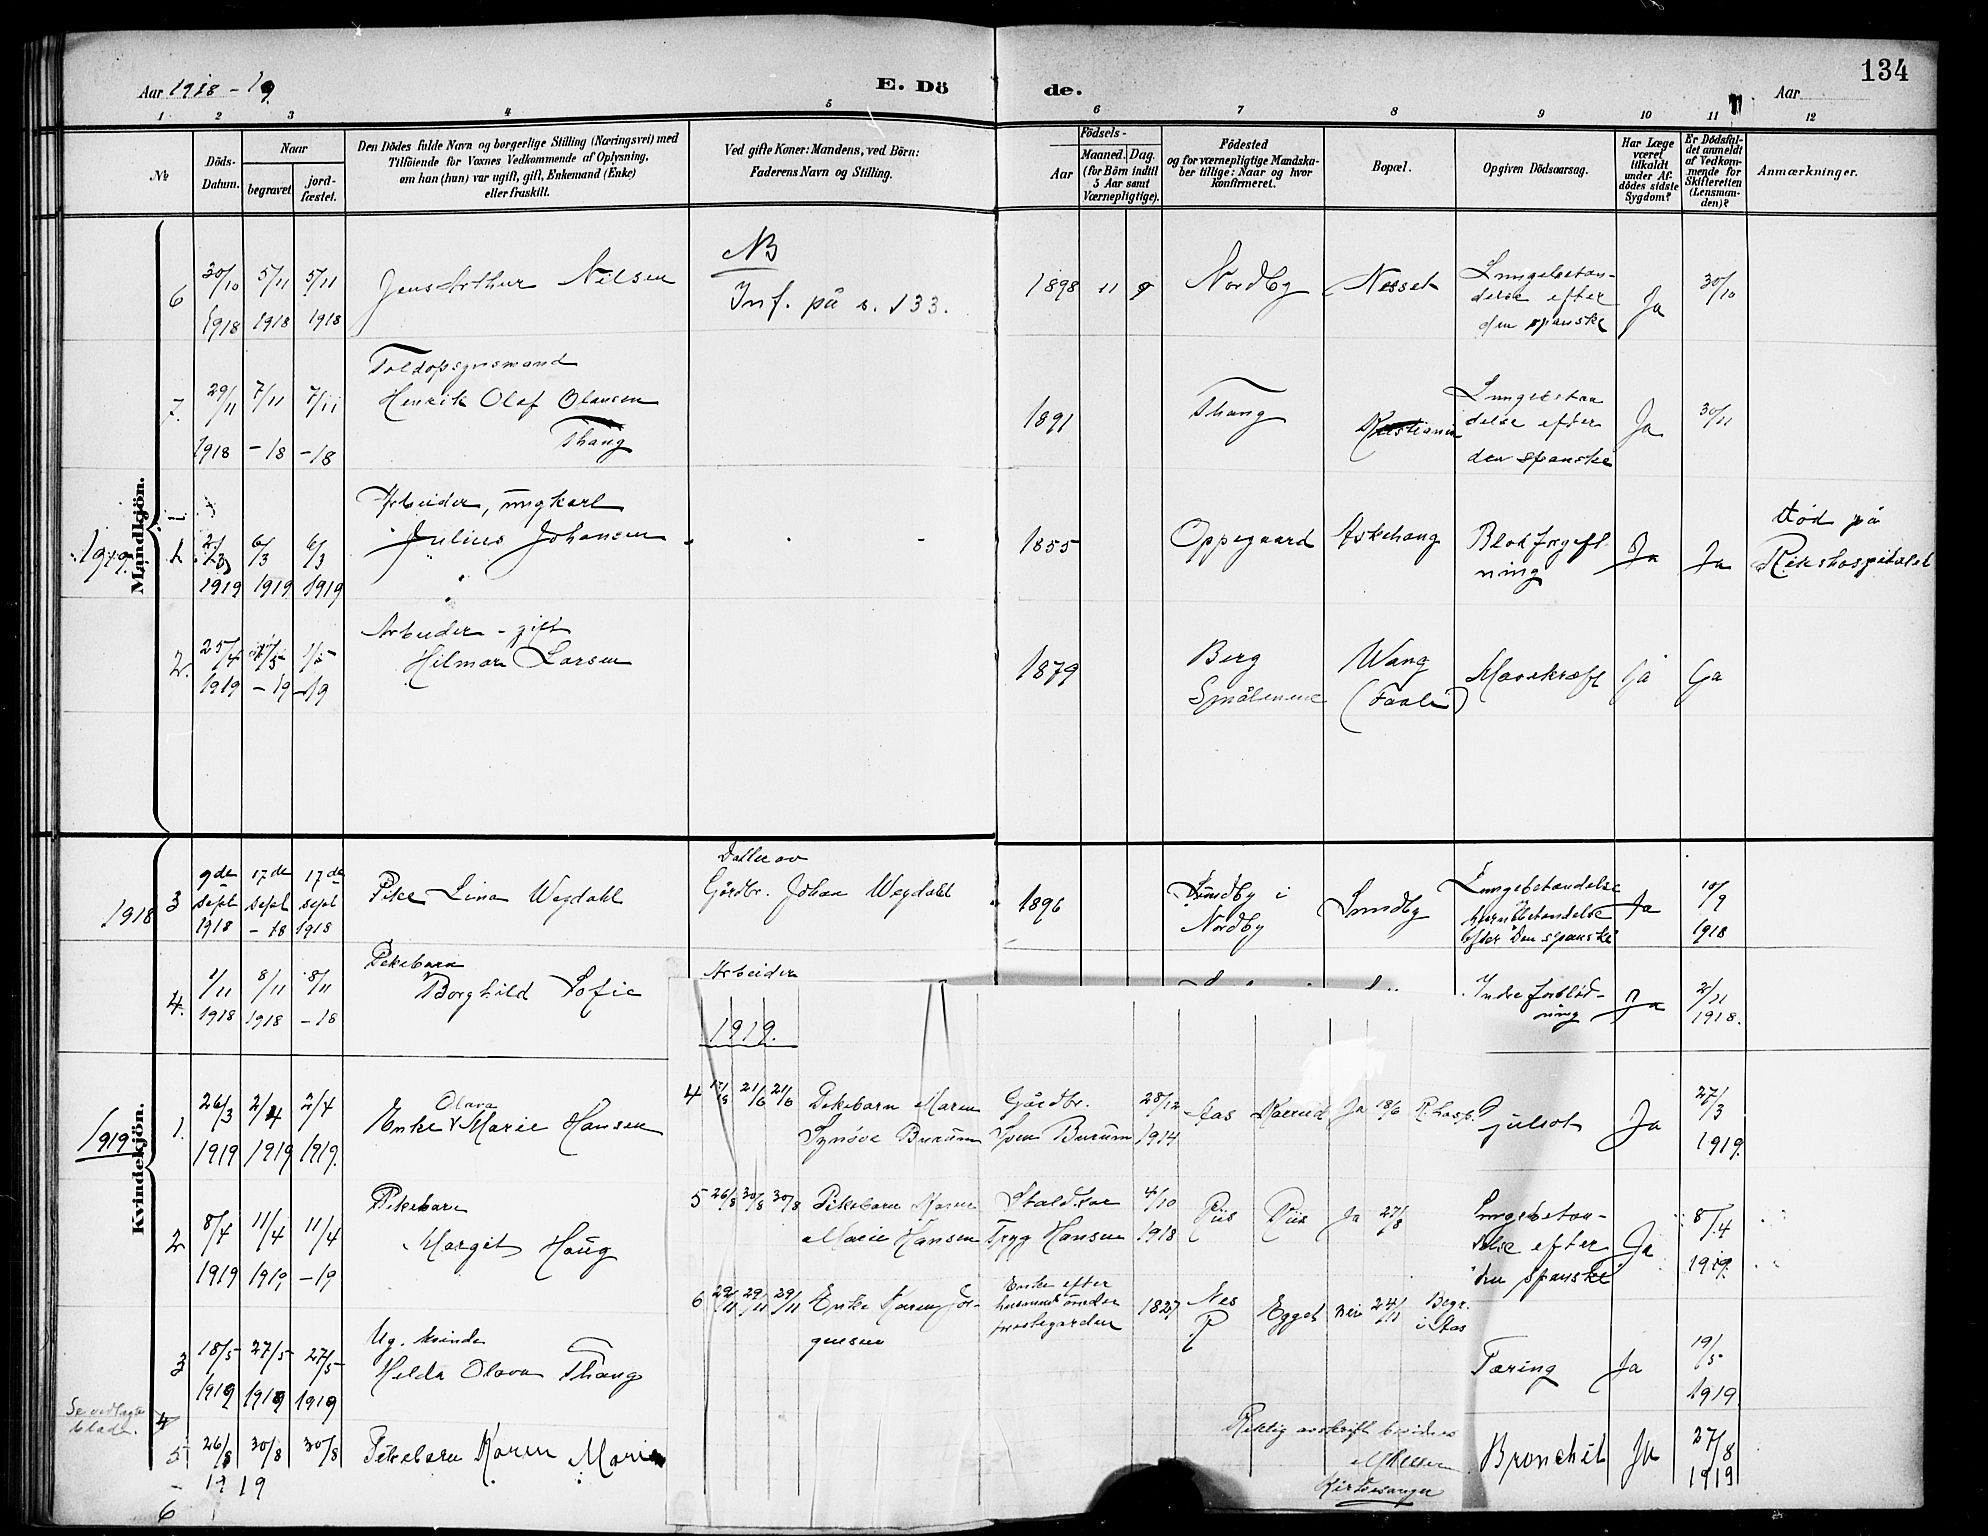 134
Aar 1918 - 19.
E. Dö
de.
Aar
1 2 3 4 5 6 7 8 9 10 11 12
№
Döds-
Datum.
Naar
begravet
jord-
fæstet.
Den Dödes fulde Navn og borgerlige Stilling (Næringsvei) med
Tilföiende for Voxnes Vedkommende af Oplysning,
om han (hun) var ugift, gift, Enkemand (Enke)
eller fraskilt.
Ved gifte Koner: Mandens, ved Börn:
Faderens Navn og Stilling.
Födsels-
Aar
Maaned. Dag.
(for Börn indtil
5 Aar samt
Værnepligtige).
Födested
og for værnepligtige Mandska-
ber tillige: Naar og hvor
konfirmeret.
Bopæl.
Opgiven Dödsaarsag.
Har Læge
været
tilkaldt
under Af-
dödes sidste
Sygdom?
Er Dödsfal-
det anmeldt
af Vedkom-
mende for
Skifteretten
(Lensman-
den)?
Anmærkninger.
Mandkjön.
6 30/10 1918 5/11 1918 5/11 1918 Jens Arthur Nilsen
NB
Inf. på s. 133.
1898 11 9 Nordby Nesset
Lungebetæn-
delse efter
den spanske
Ja 30/10
7. 29/11 1918 7/11 -18 7/11 -18
Toldopsynsmand
Henrik Olaf Olausen
Thang
1891 Thang Kristiania
delse efter
den spanske
Ja 30/11
1919.
1 2/3 1919 6/3 1919 6/3 1919
Arbeider, ungkarl
Julius Johansen
1855 Oppegaard Askehaug
Blodforgift-
ning
Ja Ja
död på
Rikshospitalet
2. 25/4 1919 1/5 -19 1/5 -19
Arbeider - gift
Hilmar Larsen
1879
Berg
Smålenene
Wang
Mavekræft Ja Ja
Kvindekjön.
1918
3 9de sept 1918 17de sept -18 17de sept 1918
Pike Lina Wegdahl
Datter av
Gårdbr. Johan Wegdahl
1896
Sundby i
Nordby
Sundby
Lungebetændelse
og
efter "Den spanske"
Ja 10/9 1918
4. 1/11 1918 8/11 1918 8/11 -18
Pikebarn
Borghild Sofie
Arbeider
Indre forblöd-
ning
Ja 2/11 1918.
1919
1. 26/3 1919 2/4 1919 2/4 1919.
Olava
Enke Marie Hansen
gulsot Ja 27/3 1919.
2 8/4 1919 11/4 1919 11/4 -19
Pikebarn
Margit Haug
Lungebetæn-
delse efter
"den spanske"
Ja 8/4 1919.
3 18/5 1919 27/5 1919 27/5 1919
Ug. kvinde
Helda Olava Thang
Tæring Ja 19/5 1919.
Se vedlagte
blade.
4
5 26/8 30/8 30/8 Pikebarn Karen Marie
1919
Bronchit Ja 27/8 1919
6
1919.
4 21/6 21/6 Pikebarn Maren
Synöve Burum
Gårdbr.
Sven Burum
28/12 1914 Aas Kærrud Ja 18/6 R.hosp.
5 26/8 30/8 30/8 Pikebarn Karen
Marie Hansen
Staldkar
Tryg Hansen
4/10 1918 Riis Riis Ja 27/8
6 29/11 29/11 Enke Karen Jör-
gensen
Enke efter
husmand under
prestegarden
1827 Nes
R
Egget nei 24/11 Begr.
i Aas
Riktig avskrift bevidnes
Kirkesanger